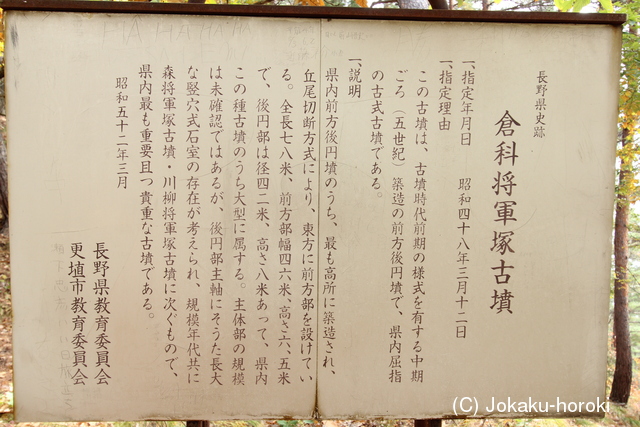 長野県史跡
倉科将軍塚古墳
一、指定年月日　昭和四十八年三月十二日
一、指定理由
この古墳は、古墳時代前期の様式を有する中期
ごろ（五世紀）築造の前方後円墳で、県内屈指
の古式古墳である。
一、説明
県内前方後円墳のうち、最も高所に築造され、
丘尾切断方式により、東方に前方部を設けてい
る。全長七八米、前方部幅四六米、高さ六、五米
で、後円部は径四二米、高さ八米あって、県内
この種古墳のうち大型に属する。主体部の規模
は未確認ではあるが、後円部主軸にそうた長大
な竪穴式石室の存在が考えられ、規模年代共に
森将軍塚古墳・川柳将軍塚古墳に次ぐもので、
県内最も重要且つ貴重な古墳である。
昭和五十二年三月
長野県教育委員会
更埴市教育委員会
(C) Jokaku-horoki